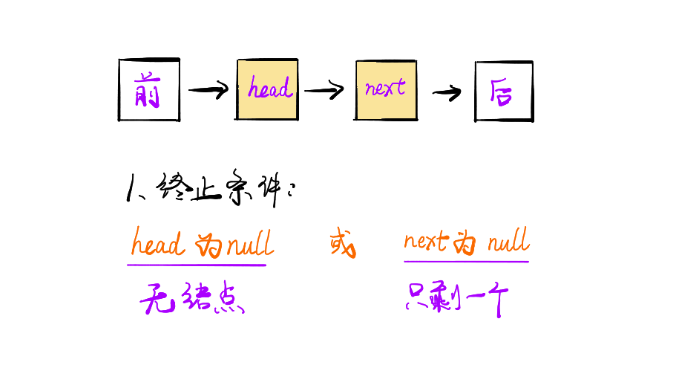 前 head next 后
1、终止条件:
head 为 null 或 next 为 null
无结点 只剩一个